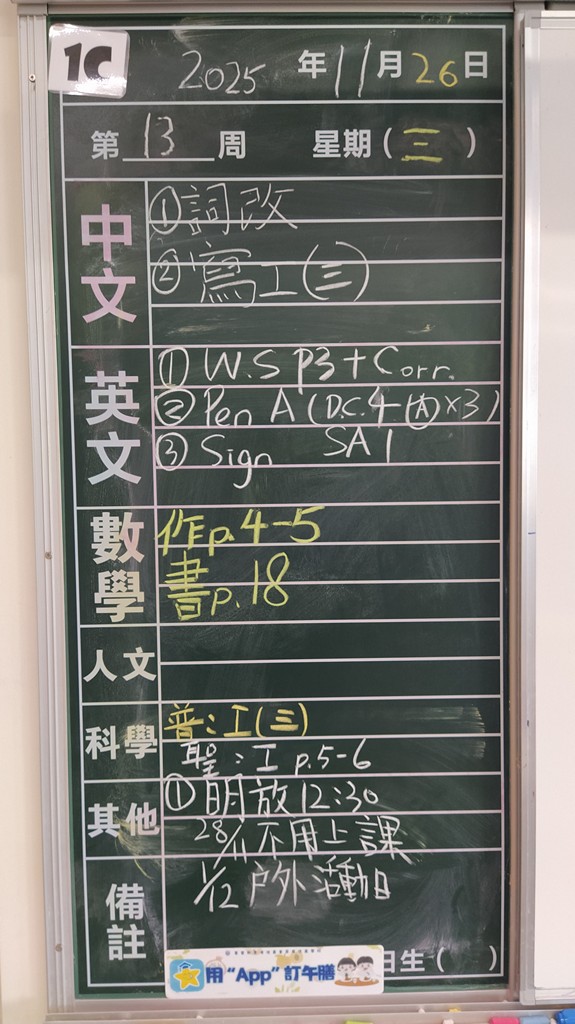 1C
2025 年 11 月 26 日
第 13 周 星期 ( 三 )
中文
① 詞改
② 寫工(三)
英文
① W.S P3 + Corr.
② Pen A (D.C. 4 - Ⓐ × 3)
③ Sign SA 1
數學
作 p.4-5
書 p.18
人文
科學
普：工(三)
聖：工 p.5-6
其他
① 明放 12:30
28/11 不用上課
備註
1/12 戶外活動日
用 “App” 訂午膳
日生 ( )